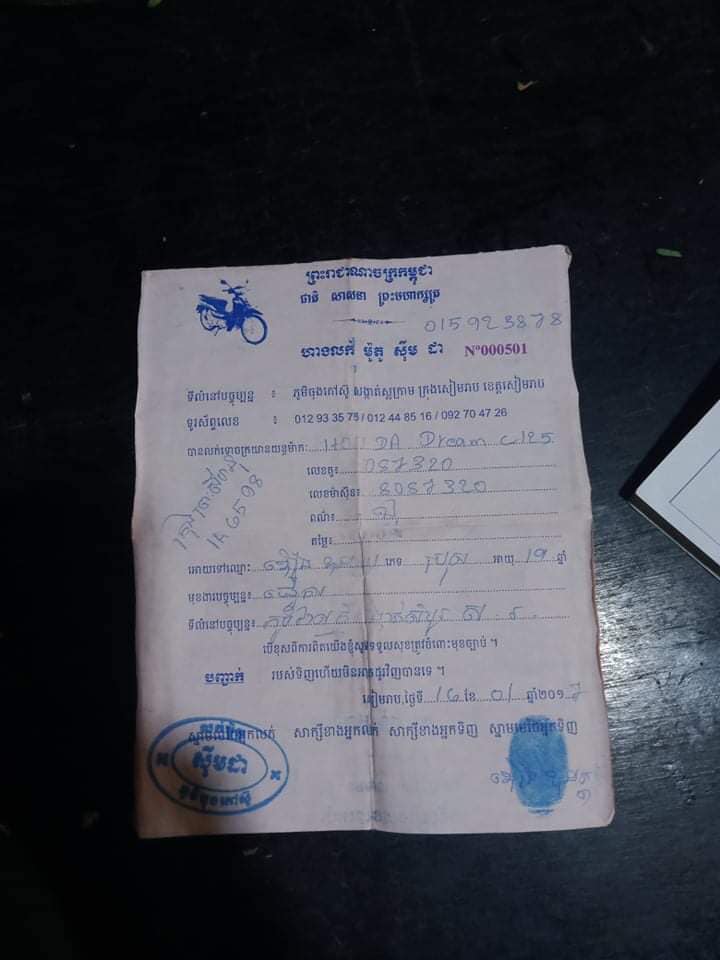 ព្រះរាជាណាចក្រកម្ពុជា
ជាតិ សាសនា ព្រះមហាក្សត្រ
015 923878
ហាងលក់ ម៉ូតូ ស៊ីម ដា Nº000501
ទីលំនៅបច្ចុប្បន្ន ៖ ភូមិចុងកៅស៊ូ សង្កាត់ស្លក្រាម ក្រុងសៀមរាប ខេត្តសៀមរាប
ទូរស័ព្ទលេខ ៖ 012 93 35 75 / 012 44 85 16 / 092 70 47 26
បានលក់ទោចក្រយានយន្តម៉ាក: HONDA Dream C125
លេខតួ៖ 087320
លេខម៉ាស៊ីន៖ 8087320
1A 6598
ពណ៌៖
តម្លៃ៖
អោយទៅឈ្មោះ ភេទ ប្រុស អាយុ 19 ឆ្នាំ
មុខងារបច្ចុប្បន្ន៖
ទីលំនៅបច្ចុប្បន្ន៖
បើខុសពីការពិតយើងខ្ញុំសូមទទួលខុសត្រូវចំពោះមុខច្បាប់ ។
បញ្ជាក់ របស់ទិញហើយមិនអាចដូរវិញបានទេ ។
សៀមរាប,ថ្ងៃទី 16 ខែ 01 ឆ្នាំ២០១7
ស្នាមមេដៃអ្នកលក់ សាក្សីខាងអ្នកលក់ សាក្សីខាងអ្នកទិញ ស្នាមមេដៃអ្នកទិញ
ស៊ីមដា
ភូមិចុងកៅស៊ូ